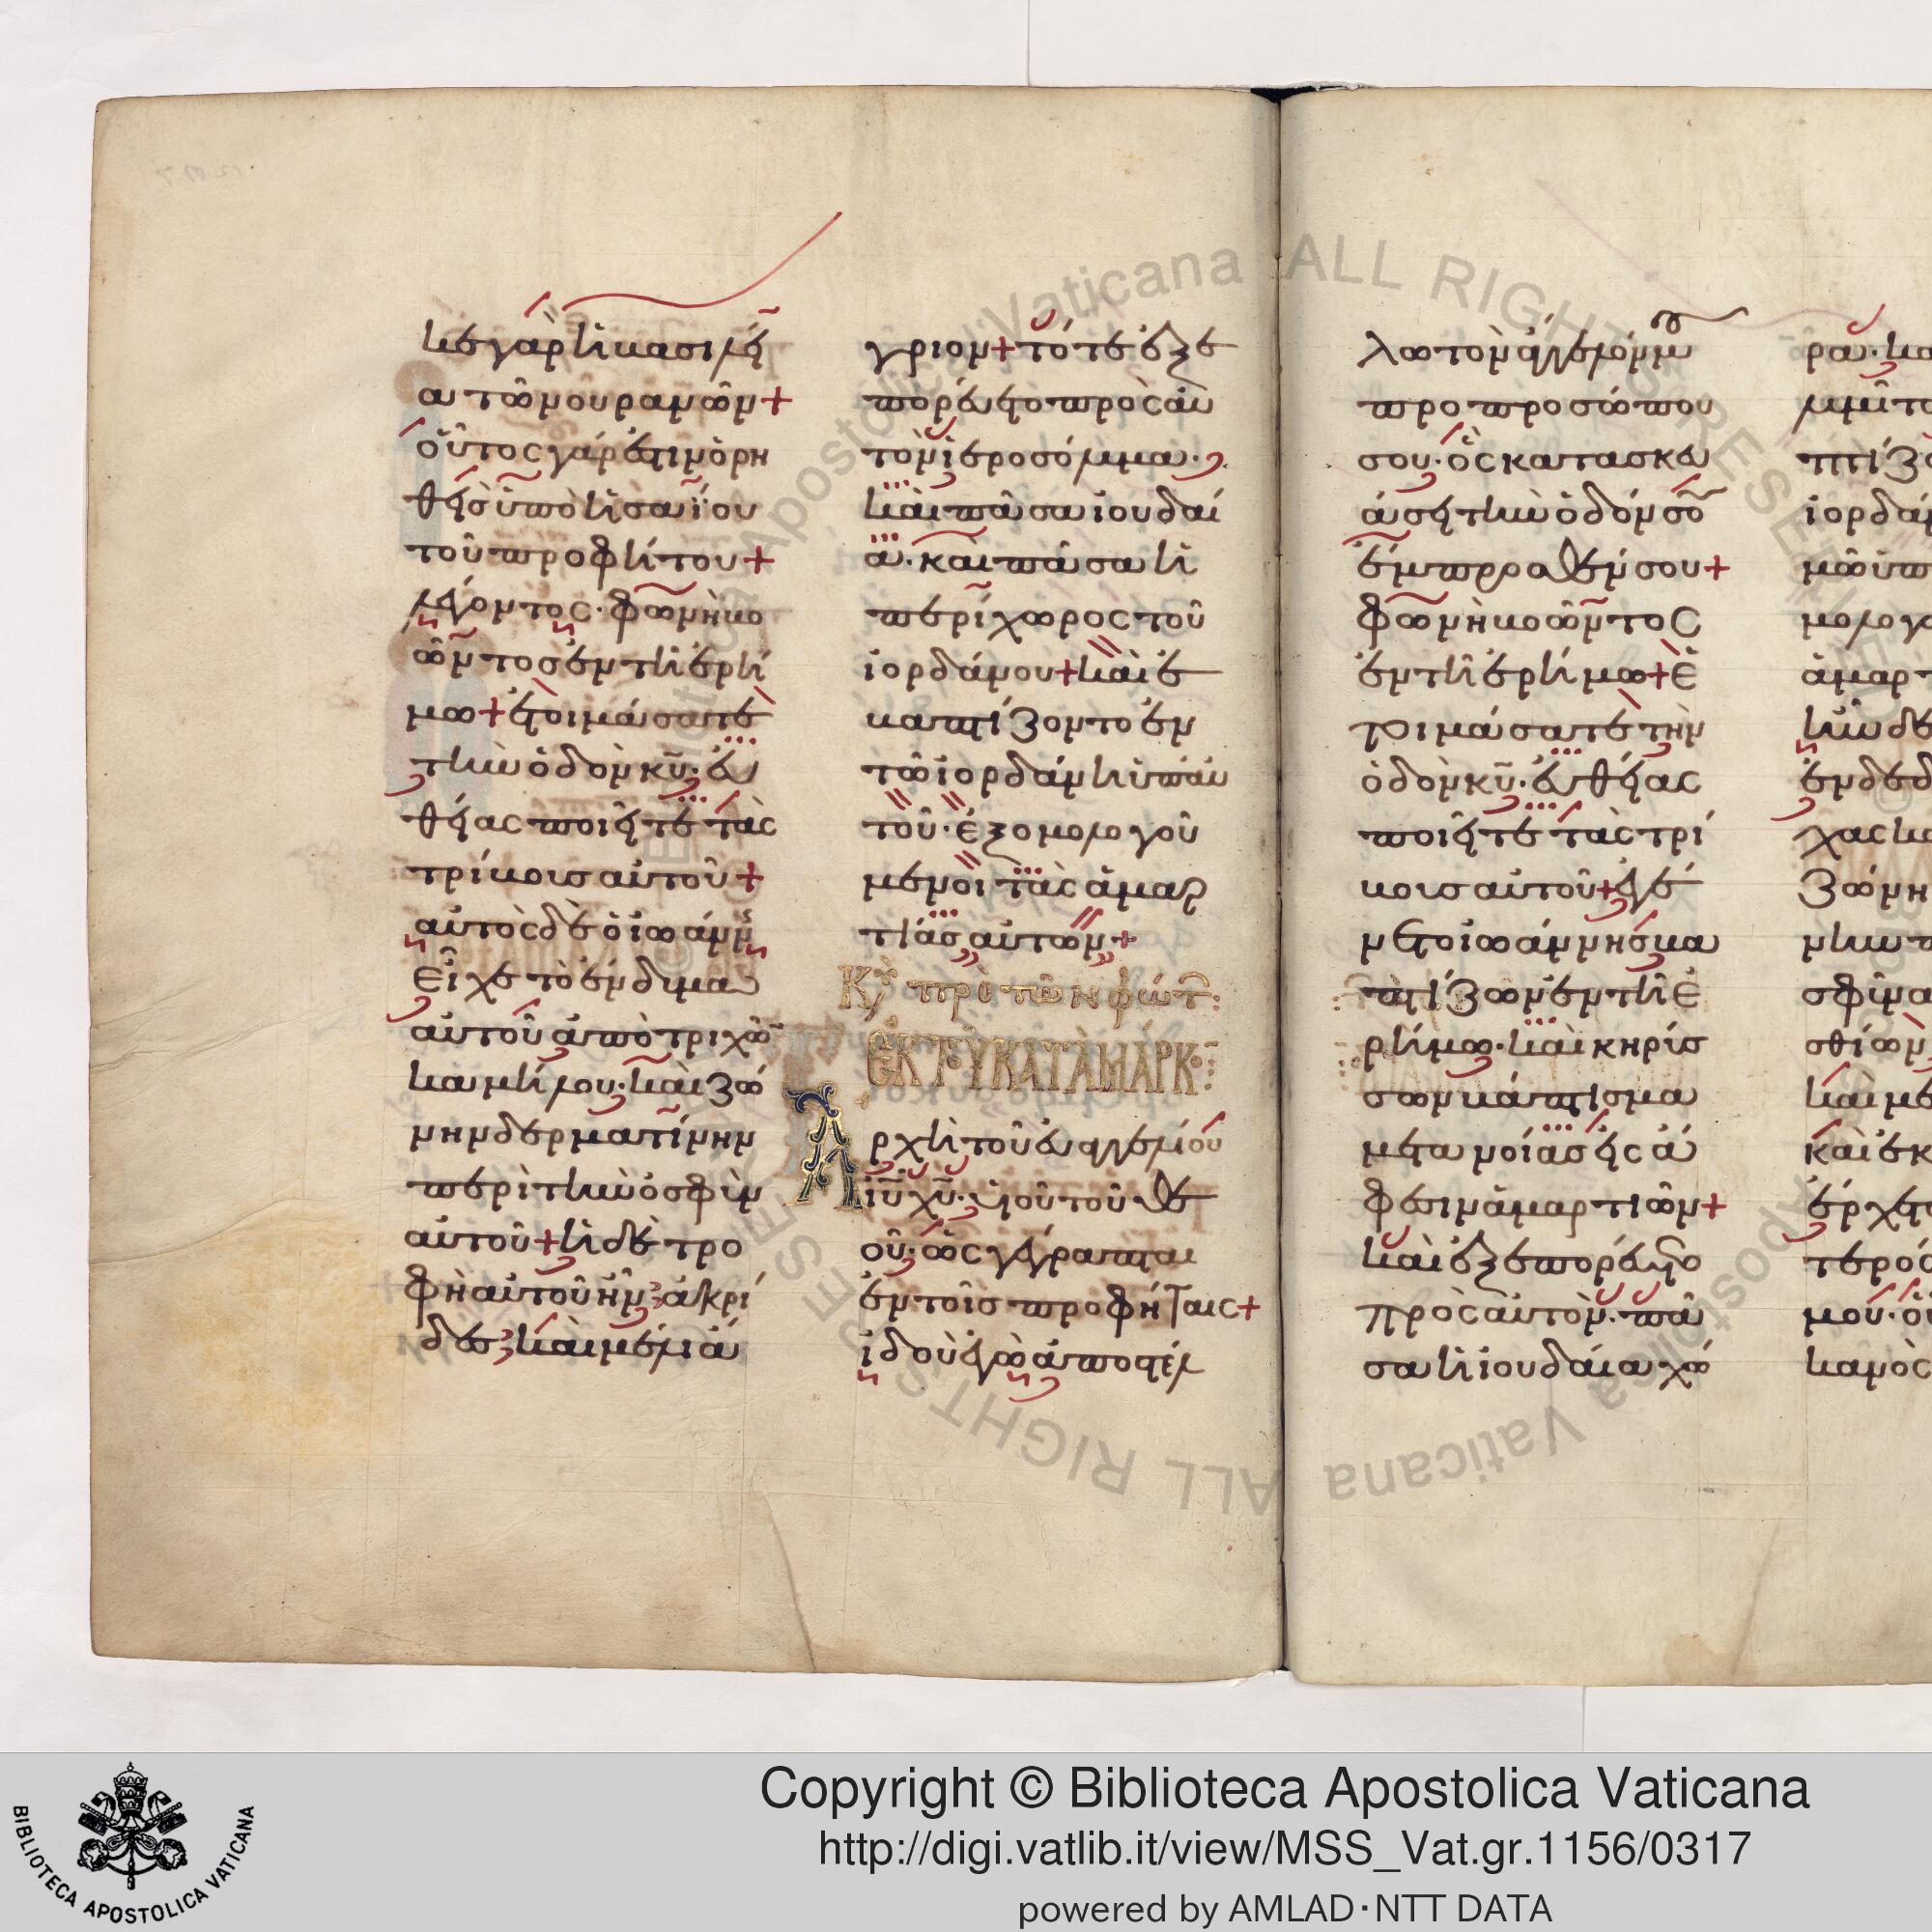 κε γὰρ ἡ βασιλεί
α τῶν οὐρανῶν+
οὗτος γάρ ἐστιν ὁ ρη
θεὶς ὑπὸ ἡσαΐου
τοῦ προφήτου+
λέγοντος· φωνὴ βο
ῶντος ἐν τῆ ἐρή
μω+ ἑτοιμάσατε
τὴν ὁδὸν κῡ· εὐ
θείας ποιεῖτε τὰς
τρίβους αὐτοῦ+
αὐτὸς δὲ ὁ ἰωάνν
εἶχε τὸ ἔνδυμα
αὐτοῦ ἀπὸ τριχῶ
καμήλου· καὶ ζώ
νην δερματίνην
περὶ τὴν ὀσφὺν
αὐτοῦ+ ἡ δὲ τρο
φὴ αὐτοῦ ἦν ἀκρί
δες· καὶ μέλι ἄ
γριον+ τότε ἐξε
πορεύετο πρὸς αὐ
τὸν ἱεροσόλυμα·
καὶ πᾶσα ἰουδαί
α· καὶ πᾶσα ἡ
περίχωρος τοῦ
ἰορδάνου+ καὶ ἐ
βαπτίζοντο ἐν
τῶ ἰορδάνη ὑπ αὐ
τοῦ· ἐξομολογοῦ
μενοι τὰς ἁμαρ
τίας αὐτῶν+
Κυ πρὸ τῶν φώτ:
ἐκ τοῦ κατὰ Μάρκ:
Ἀρχὴ τοῦ εὐαγγελίου
ἰῡ χῡ· υἱοῦ τοῦ θε
οῦ· ὡς γέγραπται
ἐν τοῖς προφήταις+
ἰδοὺ ἐγὼ ἀποστέλ
λω τὸν ἄγγελόν μου
πρὸ προσώπου
σου· ὃς κατασκευ
άσει τὴν ὁδόν σου
ἔμπροσθέν σου+
φωνὴ βοῶντος
ἐν τῆ ἐρήμω+ ἑ
τοιμάσατε τὴν
ὁδὸν κῡ· εὐθείας
ποιεῖτε τὰς τρί
βους αὐτοῦ+ ἐγέ
νετο ἰωάννης βα
πτίζων ἐν τῆ ἐ
ρήμω· καὶ κηρύσ
σων βάπτισμα
μετανοίας εἰς ἄ
φεσιν ἁμαρτιῶν+
καὶ ἐξεπορεύετο
πρὸς αὐτὸν· πᾶ
σα ἡ ἰουδαία χώ
ρα· κα
ἰορδά
μολογο
ἁμαρτ
ἐνδεδ
σθίων
καὶ
ἔρχετ
Copyright © Biblioteca Apostolica Vaticana
http://digi.vatlib.it/view/MSS_Vat.gr.1156/0317
powered by AMLAD·NTT DATA
BIBLIOTECA APOSTOLICA VATICANA